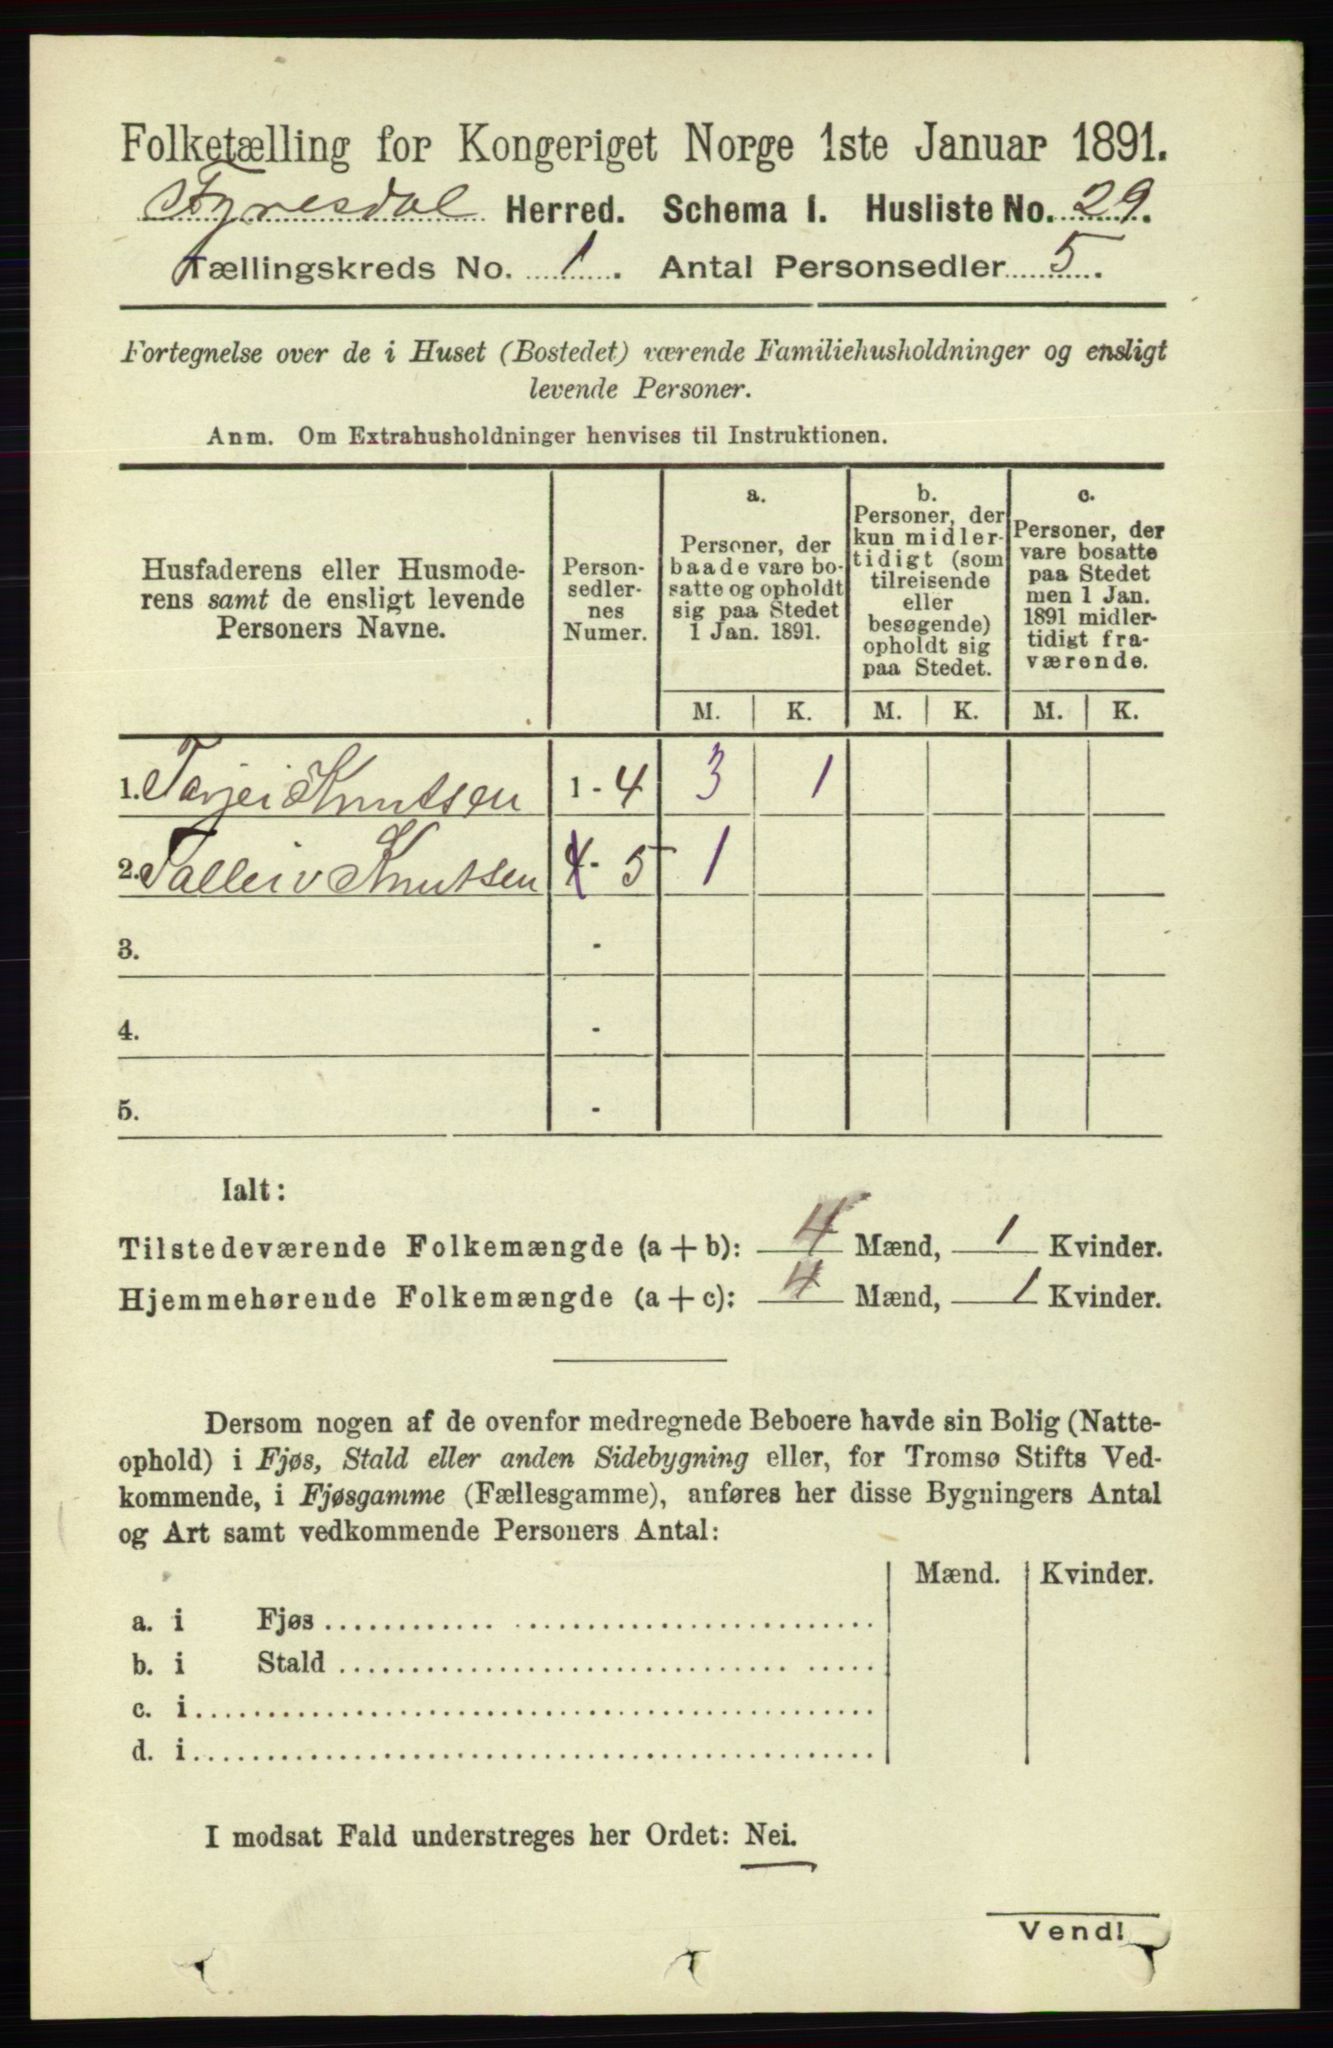 Folketælling for Kongeriget Norge 1ste Januar 1891.
Fyresdal Herred. Schema I. Husliste No. 29.
Tællingskreds No. 1. Antal Personsedler 5.
Fortegnelse over de i Huset (Bostedet) værende Familiehusholdninger og ensligt
levende Personer.
Anm. Om Extrahusholdninger henvises til Instruktionen.
Husfaderens eller Husmode-
rens samt de ensligt levende
Personers Navne.
Person-
sedler-
nes
Numer.
a.
Personer, der
baade vare bo-
satte og opholdt
sig paa Stedet
1 Jan. 1891.
b.
Personer, der
kun midler-
tidigt (som
tilreisende
eller
besøgende)
opholdt sig
paa Stedet.
c.
Personer, der
vare bosatte
paa Stedet
men 1 Jan.
1891 midler-
tidigt fra-
værende.
M. K. M. K. M. K.
1. Tarjei Knutsen 1 - 4 3 1
2. Talleiv Knutsen 4 - 5 1
3. -
4. -
5. -
Ialt:
Tilstedeværende Folkemængde (a + b): 4 Mænd, 1 Kvinder.
Hjemmehørende Folkemængde (a + c): 4 Mænd, 1 Kvinder.
Dersom nogen af de ovenfor medregnede Beboere havde sin Bolig (Natte-
ophold) i Fjøs, Stald eller anden Sidebygning eller, for Tromsø Stifts Ved-
kommende, i Fjøsgamme (Fællesgamme), anføres her disse Bygningers Antal
og Art samt vedkommende Personers Antal:
Mænd. Kvinder.
a. i Fjøs
b. i Stald
c. i
d. i
I modsat Fald understreges her Ordet: Nei.
Vend!